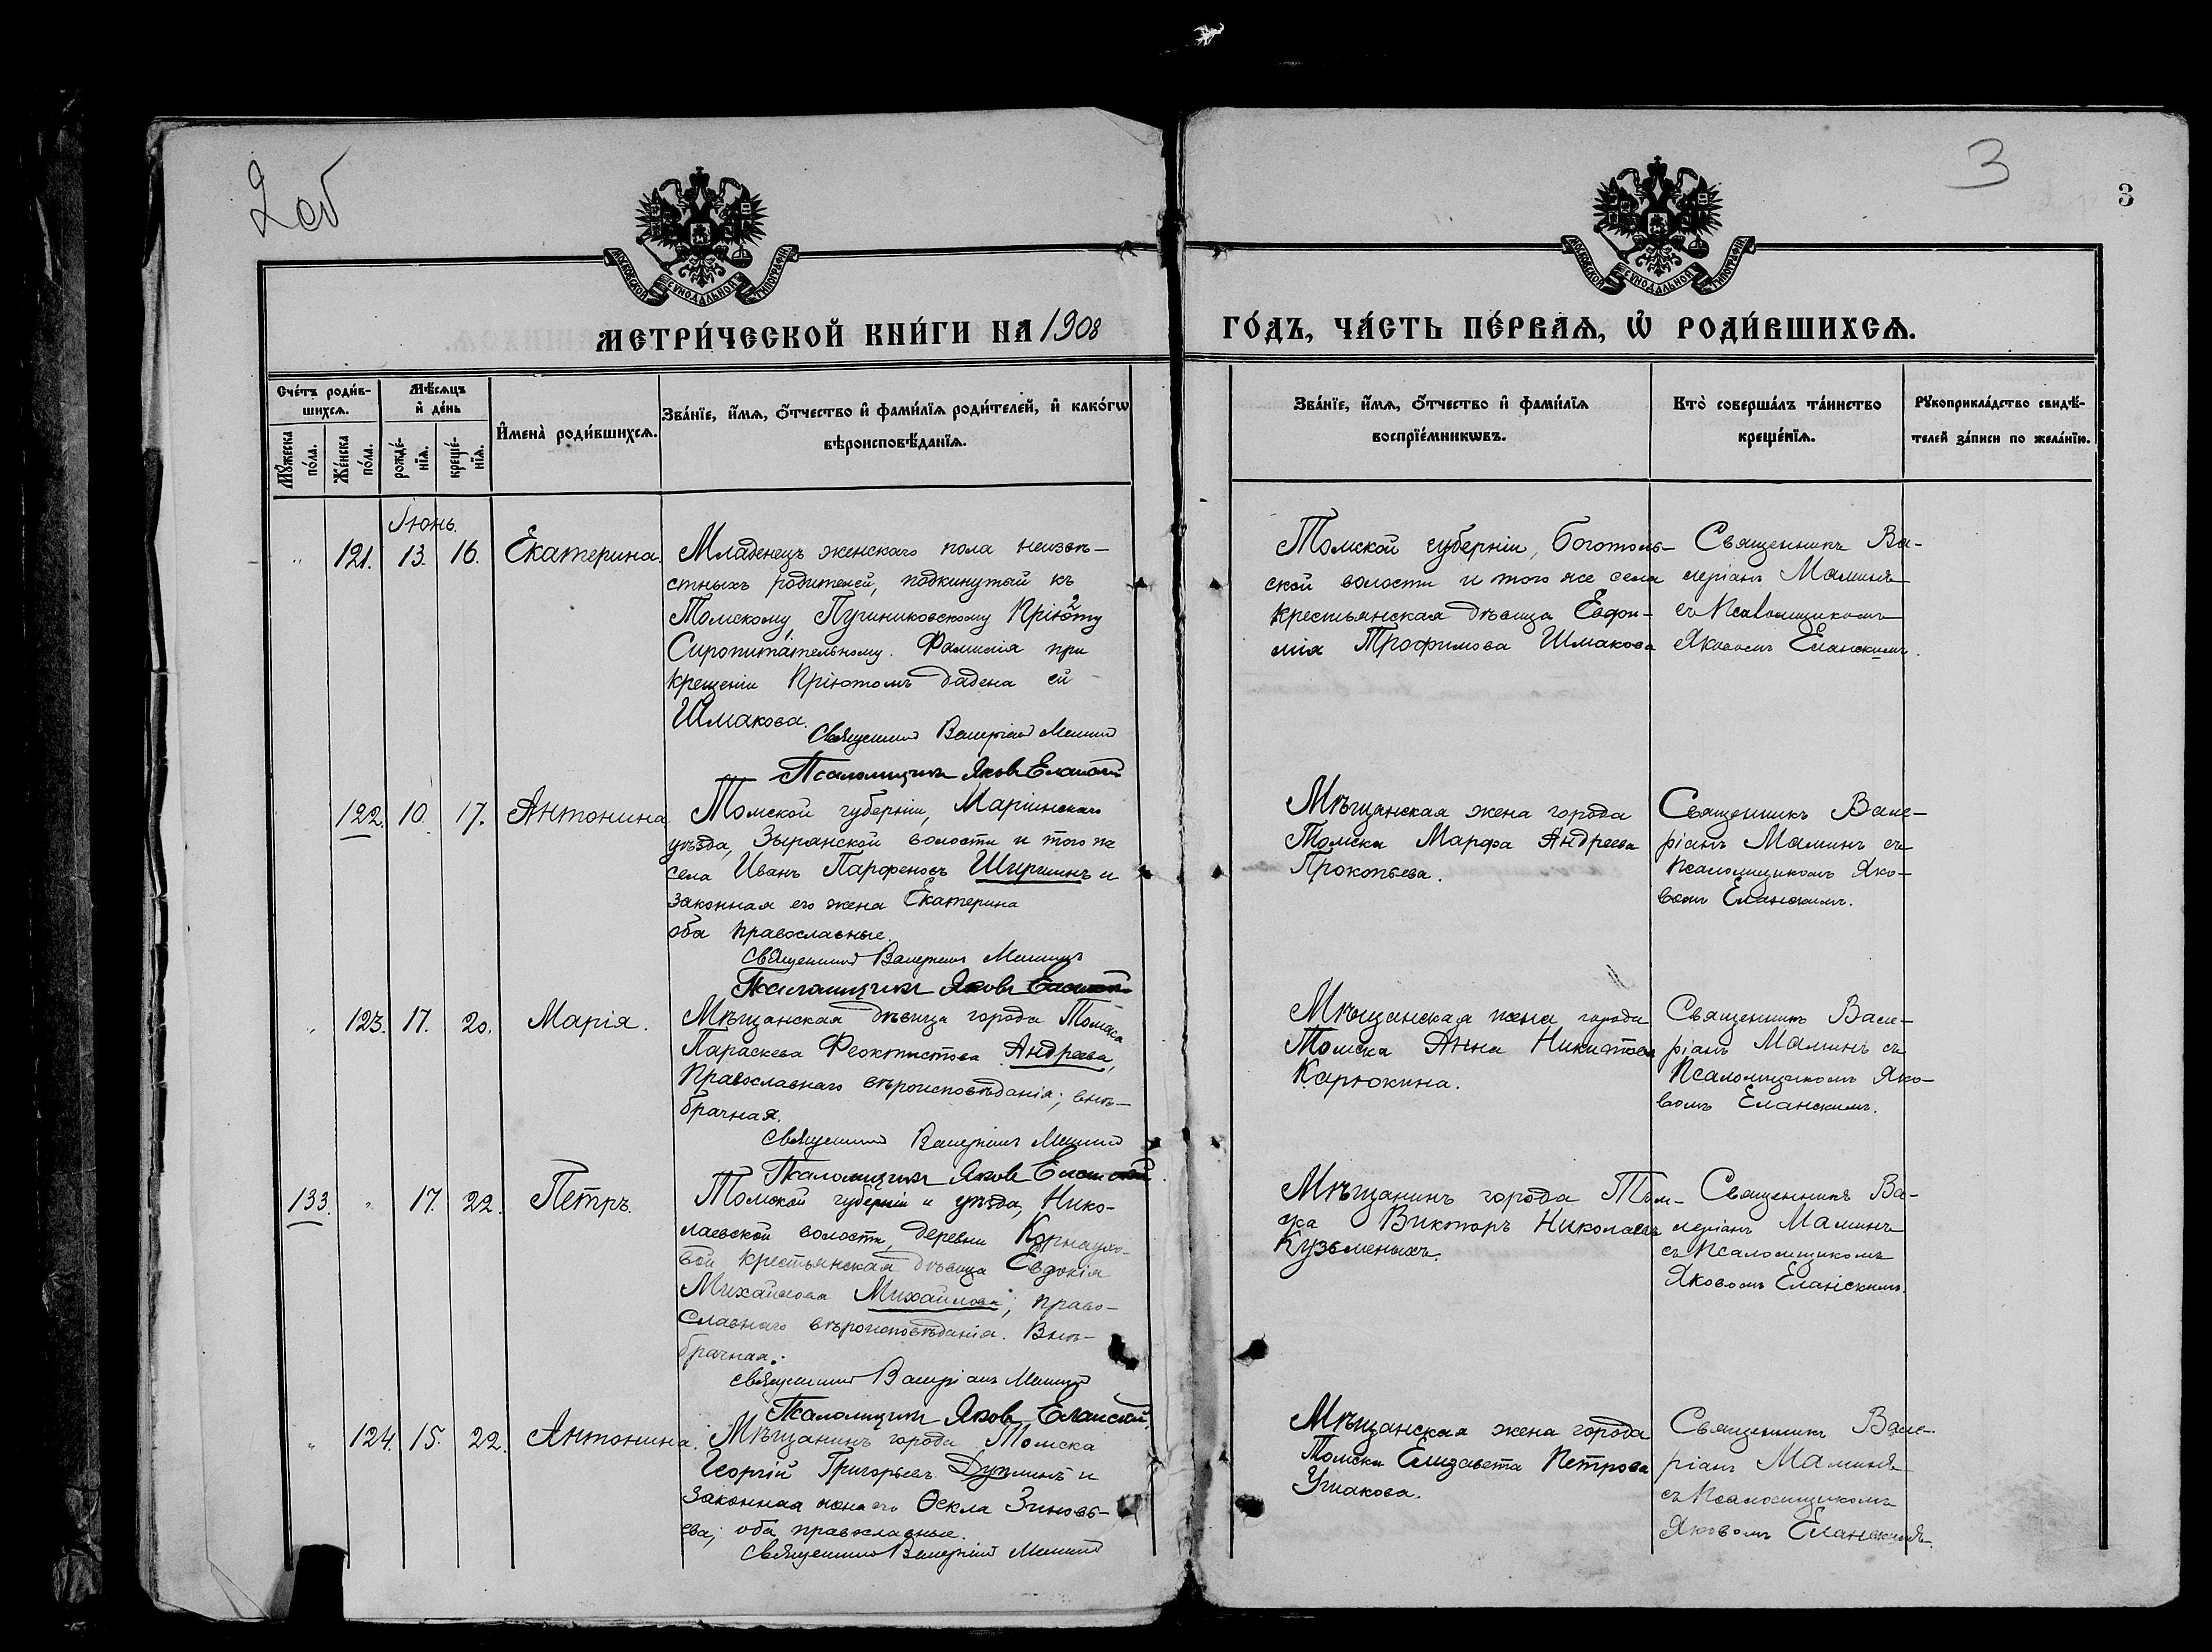 2об
3
3
МОСКОВСКОЙ СѴНОДАЛЬНОЙ ТИПОГРАФІИ
МОСКОВСКОЙ СѴНОДАЛЬНОЙ ТИПОГРАФІИ
МЕТРИ́ЧЕСКОЙ КНИ́ГИ НА 1908
ГО́ДЪ, ЧА́СТЬ ПЕ́РВАѦ, Ѡ҆ РОДИ́ВШИХСѦ.
Сче́тъ роди́в-
шихсѧ.
Мѣ́сѧцъ
и҆ де́нь
Мꙋ́жеска
по́ла.
Же́нска
по́ла.
рожде́-
нїѧ.
креще́-
нїѧ.
И҆мена̀ роди́вшихсѧ.
Зва́нїе, и҆́мѧ, ѻ҆́тчество и҆ фами́лїѧ роди́телей, и҆ како́гѡ
вѣроисповѣ́данїѧ.
Зва́нїе, и҆́мѧ, ѻ҆́тчество и҆ фами́лїѧ
воспрїе́мникѡвъ.
Кто̀ соверша́лъ та́инство
креще́нїѧ.
Рꙋкоприкла́дство свидѣ́-
телей за́писи по жела́нїю.
Іюнь.
" 121. 13. 16. Екатерина.
Младенецъ женскаго пола неизвѣ-
стныхъ родителей, подкинутый къ
Томскому Пушниковскому Пріюту 2
Сиропитательному. Фамилія при
крещеніи Пріютомъ дадена ей
Шмакова.
Священникъ Валеріанъ Маминъ
Псаломщикъ Яковъ Еланскій
Томской губерніи, Боготоль-
ской волости и того же села
крестьянская дѣвица Евфи-
мія Трофимова Шмакова
Священникъ Ва-
леріанъ Маминъ
съ Псаломщикомъ
Яковомъ Еланскимъ.
122. 10. 17. Антонина
Томской губерніи, Маріинскаго
уѣзда, Зырянской волости и того же
села Иванъ Парфеновъ Ширшинъ и
законная его жена Екатерина
оба православные.
Священникъ Валеріанъ Маминъ
Псаломщикъ Яковъ Еланскій
Мѣщанская жена города
Томска Марфа Андреева
Прокопьева.
Священникъ Вале-
ріанъ Маминъ съ
Псаломщикомъ Яко-
вомъ Еланскимъ.
" 123. 17. 20. Марія.
Мѣщанская дѣвица города Томска
Параскева Феоктистова Андреева,
Православнаго вѣроисповѣданія; внѣ-
брачная.
Священникъ Валеріанъ Маминъ
Псаломщикъ Яковъ Еланскій
Мѣщанская жена города
Томска Анна Никитова
Карюкина.
Священникъ Вале-
ріанъ Маминъ съ
Псаломщикомъ Яко-
вомъ Еланскимъ.
133. " 17. 22. Петръ.
Томской губерніи и уѣзда, Нико-
лаевской волости, деревни
вой крестьянская дѣвица Евдокія
Михайлова Михайлова; право-
славнаго вѣроисповѣданія. Внѣ-
брачная.
Священникъ Валеріанъ Маминъ
Псаломщикъ Яковъ Еланскій
Мѣщанинъ города Том-
ска Викторъ Николаевъ
Кузьменыхъ.
Священникъ Ва-
леріанъ Маминъ
съ Псаломщикомъ
Яковомъ Еланскимъ.
" 124. 15. 22. Антонина.
Мѣщанинъ города Томска
Георгій Григорьевъ и
законная жена его Ѳекла Зиновь-
ева; оба православные.
Священникъ Валеріанъ Маминъ
Мѣщанская жена города
Томска Елизавета Петрова
Ушакова.
Священникъ Вале-
ріанъ Маминъ
съ Псаломщикомъ
Яковомъ Еланскимъ.